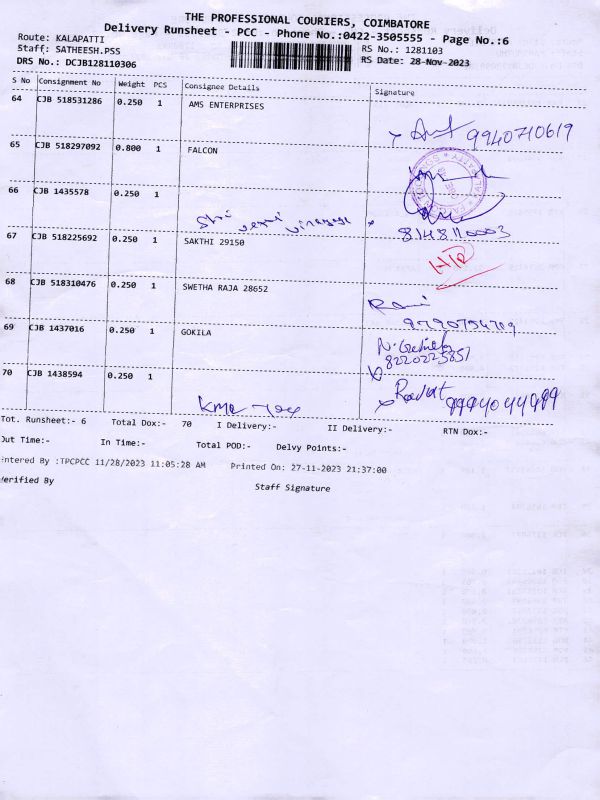 THE PROFESSIONAL COURIERS, COIMBATORE
Delivery Runsheet - PCC - Phone No.:0422-3505555 - Page No.:6
Route: KALAPATTI
RS No.: 1281103
Staff: SATHEESH.PSS
RS Date: 28-Nov-2023
DRS No.: DCJB128110306
S No Consignment No Weight PCS Consignee Details Signature
64 CJB 518531286 0.250 1 AMS ENTERPRISES
9940710619
65 CJB 518297092 0.800 1 FALCON
66 CJB 1435578 0.250 1
Sri
8148110003
67 CJB 518225692 0.250 1 SAKTHI 29150
68 CJB 518310476 0.250 1 SWETHA RAJA 28652
Rani
69 CJB 1437016 0.250 1 GOKILA
8220225851
70 CJB 1438594 0.250 1
KMR
Tot. Runsheet:- 6 Total Dox:- 70 I Delivery:- II Delivery:- RTN Dox:-
Out Time:- In Time:- Total POD:- Delvy Points:-
Entered By :TPCPCC 11/28/2023 11:05:28 AM Printed On: 27-11-2023 21:37:00
Verified By
Staff Signature